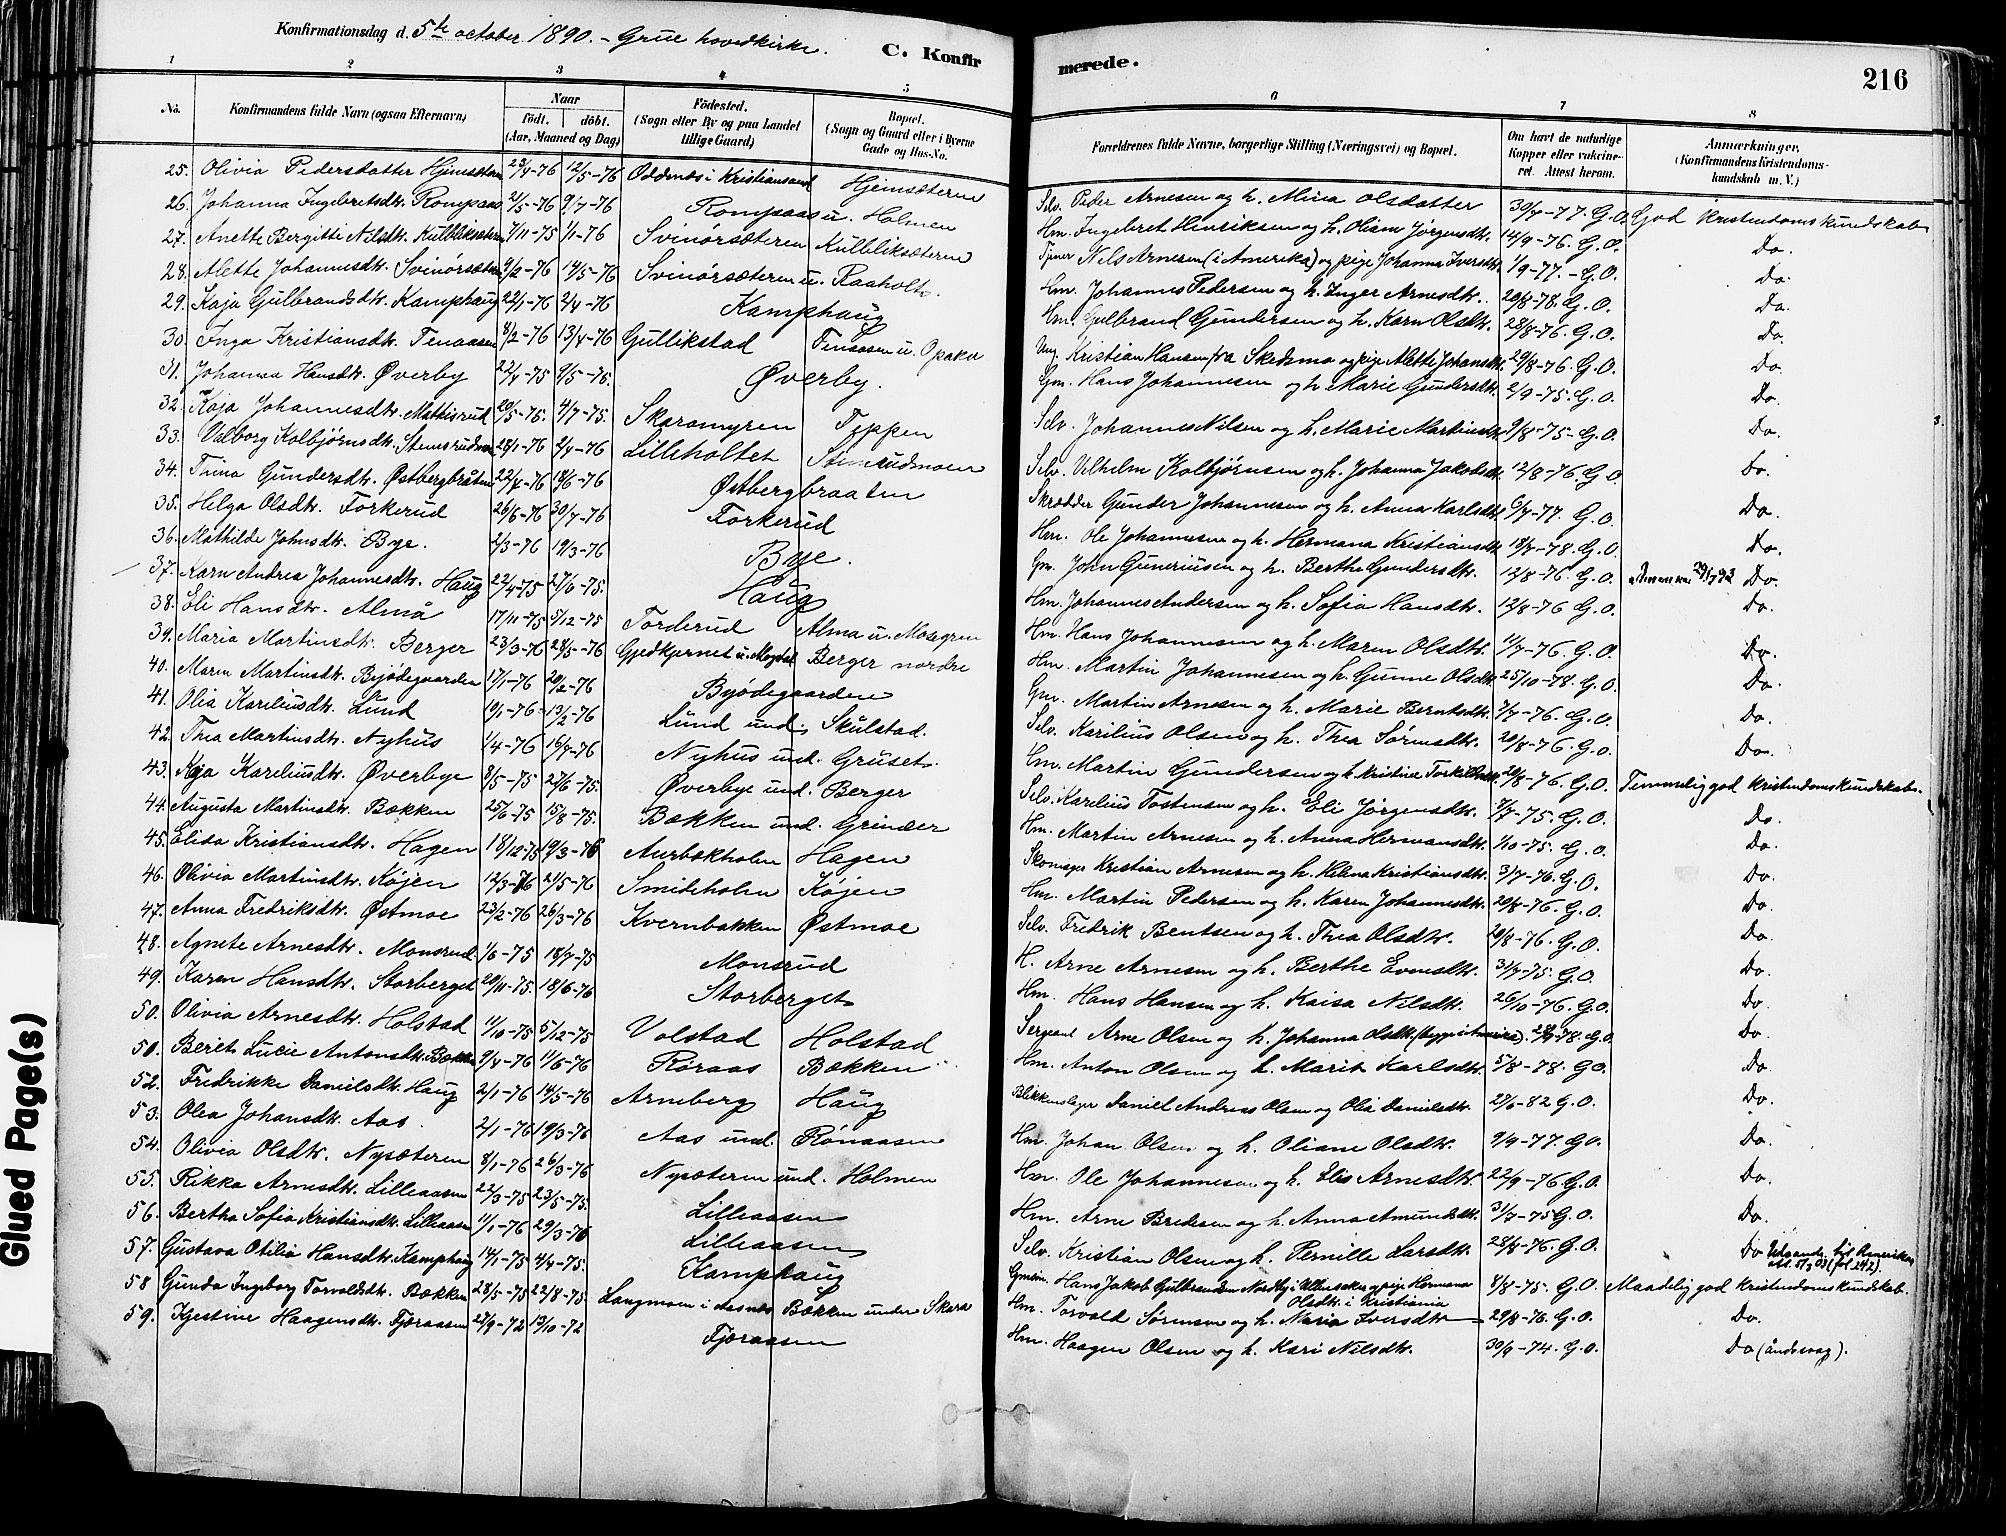 Konfirmationsdag d. 5te october 1890. – Grue hovedkirke.
C. Konfirmerede.
216
1 2 3 4 5 6 7 8
No. Konfirmandens fulde Navn (ogsaa Efternavn) Naar födt. döbt. (Aar, Maaned og Dag) Födested. (Sogn eller By og paa Landet tillige Gaard) Bopæl. (Sogn og Gaard eller i Byerne Gade og Hus-No. Forældrenes fulde Navne, borgerlige Stilling (Næringsvei) og Bopæl. Om havt de naturlige Kopper eller vakcineret. Attest herom. Anmærkninger. (Konfirmandens Kristendomskundskab m. V.)
25. Olivia Pedersdatter Hjemsæteren 23/4-76 12/5-76 Oddernes i Kristiansand Hjemsæteren Selv. Peder Arnesen og h. Mina Olsdatter 30/7-77. G.O. God kristendomskundskab
26. Johanna Ingebretsdtr. Rompaas 2/5-76 9/7-76 Rompaas u. Holmen Hm. Ingebret Henriksen og h. Oliam Jørgensdtr. 14/9-76. G.O. Do.
27. Anette Bergitti Nilsdtr. Kulbliksæteren 7/11-75 1/1-76 Svinörsæteren Kulbliksæteren Tjener Nils Arnesen (i Amerika) og pige Johanna Iversdtr. 1/9-77. - G.O. Do.
28. Alette Johannesdtr. Svinörsæteren 9/2-76 14/5-76 Svinörsæteren u. Raaholt. Hm. Johannes Pedersen og h. Inger Arnesdtr. 20/8-78. G.O. Do.
29. Kaja Gulbrandsdtr. Kamphaug 22/1-76 2/4-76 Kamphaug Hm. Gulbrand Gundersen og h. Karn Olsdtr. 28/8-76. G.O. Do.
30. Inga Kristiansdtr. Tenaasen 8/2-76 13/4-76 Gullikstad Tenaasen u. Opaker Ung. Kristian Hansen fra Skedsmo og pige Alette Johansdtr. 29/8-76. G.O. Do.
31. Johanna Hansdtr. Øverby 22/4-75 9/5-75. Øverby. Gm. Hans Johannesen og h. Marie Gundersdtr. 2/9-75. G.O. Do.
32. Kaja Johannesdtr. Mathisrud 20/5-75. 4/7-75. Skaramyren Teppen Selv. Johannes Nilsen og h. Marie Martinsdtr. 9/8-75- G.O. Do.
33. Valborg Kolbjørnsdtr. Stemsrudmoen 28/1-76 2/4-76 Lilleholtet Stemsrudmoen Selv. Vilhelm Kolbjørnsen og h. Johanna Jakobsdtr. 12/8-76. G.O. Do.
34. Trina Gundersdtr. Østbergbråten 22/4-76 18/6-76 Østbergbraaten Skrædder Gunder Johannesen og h. Anna Karlsdtr. 6/7-77. G.O. Do.
35. Helga Olsdtr. Forkerud 26/6-76 30/7-76 Forkerud Hm. Ole Johannesen og h. Hermana Kristiansdtr. 18/7-78. G.O. Do.
36. Mathilde Johnsdtr. Bye. 2/3-76 19/3-76 Bye. Gm. John Guneriusen og h. Berthe Gundersdtr. 12/8-76. G.O. Do.
37. Karn Andrea Johannesdtr. Haug 22/4-75 27/6-75. Haug Hm. Johannes Andersen og h. Sofia Hansdtr. 12/8-76 G.O. Do.
38. Eli Hansdtr. Almå 17/11-75 5/12-75 Torderud Alma u. Mosegren Hm. Hans Johannesen og h. Maren Olsdtr. 11/7-76. G.O. Do.
39. Maria Martinsdtr. Berger 23/3-76 28/5-76 Gjedkjernet u. Mogstad Berger nordre Hm. Martin Johannesen og h. Gunne Olsdtr. 25/10-78. G.O. Do.
40. Maren Martinsdtr. Byjødegaarden 17/1-76 20/2-76 Byjødegaarden Gm. Martin Arnesen og h. Marie Berntsdtr. 7/7-76. G.O. Do.
41. Olia Kareliusdtr. Lund 10/1-76- 13/2-76 Lund und. Skulstad. Selv. Karilius Olsen og h. Thea Sørensdtr. 20/8-76. G.O. Do.
42. Thea Martinsdtr. Nyhus 1/4-76 16/7-76 Nyhus und. Gruset. Hm. Martin Gundersen og h. Kristine Torkildsdtr. 20/8-76. G.O. Temmelig god kristendomskundskab.
43. Kaja Kareliusdtr. Øverbye 8/5-75 27/6-75. Øverbye und. Berger Selv. Karelius Tostensen og h. Eli Jørgensdtr. 7/7-75. G.O. Do.
44. Augusta Martinsdtr. Bækken 25/6-75 15/8-75. Bækken und. Grinder Hm. Martin Arnesen og h. Anna Hermansdtr. 1/10-75. G.O. Do.
45. Elida Kristiansdtr. Hagen 18/12-75 19/3-76 Aurbækholm Hagen Skomager Kristian Arnesen og h. Helena Kristiansdtr. 3/7-76. G.O. Do.
46. Olivia Martinsdtr. Køjen 12/3-76 21/5-76 Smidsholm Køjen Hm. Martin Pedersen og h. Karen Johannesdtr. 20/8-76. G.O. Do.
47. Anna Fredriksdtr. Østmoe 23/2-76 26/3-76 Kvernbakken Østmoe Selv. Fredrik Bentsen og h. Thea Olsdtr. 20/8-76. G.O. Do.
48. Agnete Arnesdtr. Monsrud 1/6-75 18/7-75 Monsrud H. Arne Arnesen og h. Berthe Evensdtr. 31/7-75. G.O Do.
49. Karen Hansdtr. Storberget 20/11-75. 18/6-76 Storberget Hm. Hans Hansen og h. Kaisa Nilsdtr. 26/10-76. G.O. Do.
50. Olivia Arnesdtr. Holstad 11/10-75 5/12-75 Volstad Holstad Sergeant Arne Olsen og h. Johanna Olsdtr. 78. G.O. Do.
50. Beret Lucie Antonsdtr. Bækken 9/4-76 11/6-76 Röraas Bækken Hm. Anton Olsen og h. Marit Karlsdtr. 5/8-78. G.O. Do.
52. Fredrikke Danielsdtr. Haug 2/1-76 14/5-76 Arneberg Haug Blikkenslager Daniel Andreas Olsen og Olia Danielsdtr. 27/6-82 G.O. Do.
53. Olea Johansdtr. Aas. 2/1-76 19/3-76 Aas und. Rönaasen Hm. Johan Olsen og h. Oliane Olsdtr. 9/9-77. G.O. Do.
54. Olivia Olsdtr. Nysæteren 8/1-76 26/3-76 Nysæteren und. Holmen Hm. Ole Johannesen og h. Elis Arnesdtr. 22/9-76 G.O. Do.
55. Rikka Arnesdtr. Lilleaasen 22/3-75 23/5-75. Lilleaasen Hm. Arne Bredesen og h. Anna Amundsdtr. 31/7-75 G.O. Do.
56. Bertha Sofia Kristiansdtr. Lilleaasen 11/1-76 29/3-76 Lilleaasen Selv. Kristian Olsen og h. Pernille Larsdtr. 28/8-76. G.O. Do
57. Gustava Otilia Hansdtr. Kamphaug 14/1-75 4/4-75. Kamphaug Hans Jakob Gulbrandsen Nordby i Ullensaker og pige Hermana Olsdtr. i Kristiania 8/8-75. G.O Maadelig god kristendomskundskab.
58 Gunda Ingeborg Torvaldsdtr. Bækken 28/5-75 22/8-75. Langmoen i Aasnes Bækken under Skara Hm. Torvald Sørensen og h. Maria Iversdtr 29/8-76. G.O. Do.
59. Kjestine Haagensdtr. Fjæraasen 27/9-72 13/10-72 Fjæraasen Hm. Haagen Olsen og h. Kari Nilsdtr. 30/9-74. G.O. Do (åndssvag).
Glued Page(s)